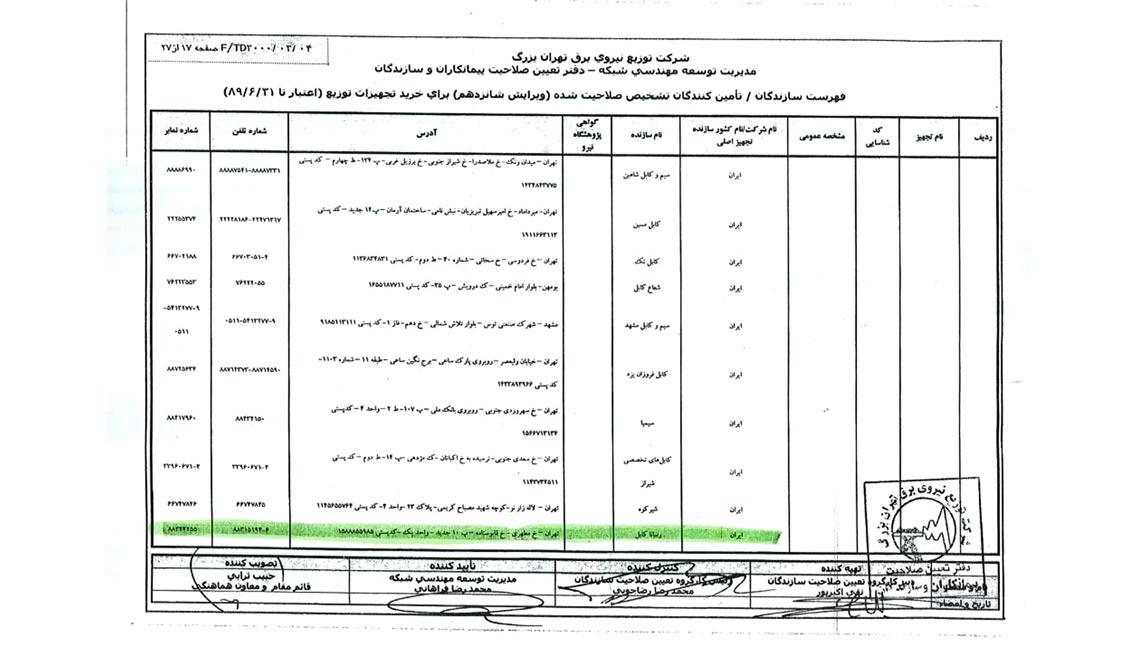 F/TD۲۰۰۰/۰۲/۰۴ صفحه ۱۷ از ۲۷
شرکت توزیع نیروي برق تهران بزرگ
مدیریت توسعه مهندسي شبکه – دفتر تعیین صلاحیت پیمانکاران و سازندگان
فهرست سازندگان / تأمین کنندگان تشخیص صلاحیت شده (ویرایش شانزدهم) براي خرید تجهیزات توزیع (اعتبار تا ۸۹/۶/۳۱)
ردیف
نام تجهیز
کد شناسایی
مشخصه عمومی
نام شرکت/نام کشور سازنده تجهیز اصلی
نام سازنده
گواهی پژوهشگاه نیرو
آدرس
شماره تلفن
شماره نمابر
ایران سیم و کابل شاهین تهران – میدان ونک- خ ملاصدرا- خ شیراز جنوبی- خ برزیل غربی- پ ۱۲۴- ط چهارم – کد پستی ۸۸۸۸۷۵۴۱-۸۸۸۸۷۳۳۱ ۸۸۸۸۶۹۹۰
۱۴۳۴۸۴۳۷۷۵
ایران کابل مسین تهران- میرداماد- خ امیرسهیل تبریزیان- نبش نامی- ساختمان آرمان – پ۱۴ جدید – کد پستی ۲۲۲۲۸۱۸۶-۲۲۴۷۱۳۱۷ ۲۲۲۵۵۳۷۴
۱۹۱۱۶۶۳۱۱۳
ایران کابل تک تهران- خ فردوسی – خ سخائی – شماره ۴۰ – ط دوم- کد پستی ۱۱۳۶۸۳۴۸۳۱ ۶۶۷۰۳۰۵۱-۴ ۶۶۷۰۲۱۸۸
ایران شعاع کابل بومهن- بلوار امام خمینی – ک درویش – پ ۲۵- کد پستی ۱۶۵۵۱۸۷۷۱۱ ۷۶۲۲۲۰۵۵ ۷۶۲۲۲۵۵۳
ایران سیم و کابل مشهد مشهد- شهرک صنعتی توس – بلوار تلاش شمالی – خ دهم- فاز ۱- کد پستی ۹۱۸۵۱۱۳۱۱۱ ۰۵۱۱-۵۴۱۲۲۷۷-۹ ۵۴۱۲۲۷۷-۹-
۰۵۱۱
ایران کابل فروزان یزد تهران – خیابان ولیعصر – روبروی پارک ساعی – برج نگین ساعی – طبقه ۱۱ – شماره ۱۱۰۳- ۸۸۷۱۴۳۷۳-۸۸۷۱۴۵۹۰ ۸۸۷۲۵۶۳۴
کد پستی ۱۴۳۳۸۹۳۹۶۶
ایران سیمیا تهران – خ سهروردی جنوبی – روبروی بانک ملی – پ ۱۰۷- ط ۲ – واحد ۴ – کدپستی ۸۸۴۳۴۱۵۰ ۸۸۴۱۷۹۶۰
۱۵۶۶۷۱۳۱۳۴
ایران کابل‌های تخصصی شیراز تهران – خ سعدی جنوبی- نرسیده به خ اکباتان -ک مژدهی -پ ۱۴- ط دوم – کد پستی ۳۳۹۶۰۶۷۱-۴ ۳۳۹۶۰۶۷۱-۴
۱۱۴۳۷۳۴۵۱۱
ایران شیرکوه تهران – لاله زار نو-کوچه شهید مصباح کریمی- پلاک ۲۳ -واحد ۴- کد پستی ۱۱۴۵۶۵۵۷۶۴ ۶۶۷۴۷۸۴۵ ۶۶۷۴۷۸۴۶
ایران رسانا کابل تهران- خ مطهری – خ – پ ۱۰ جدید- واحد یک -کد پستی ۱۵۸۸۸۵۵۹۸۵ ۸۸۳۱۵۱۹۲-۴
تهیه کننده
دبیر کارگروه تعیین صلاحیت سازندگان
تقی اکبرپور
کنترل کننده
رئیس کارگروه تعیین صلاحیت سازندگان
محمد رضا رضاجویی
تأیید کننده
مدیریت توسعه مهندسي شبکه
محمد رضا فراهاني
تصویب کننده
حبیب ترابي
قائم مقام و معاون هماهنگي
تاریخ و امضاء
شرکت توزیع نیروی برق تهران بزرگ
دفتر تعیین صلاحیت
پیمانکاران و سازندگان